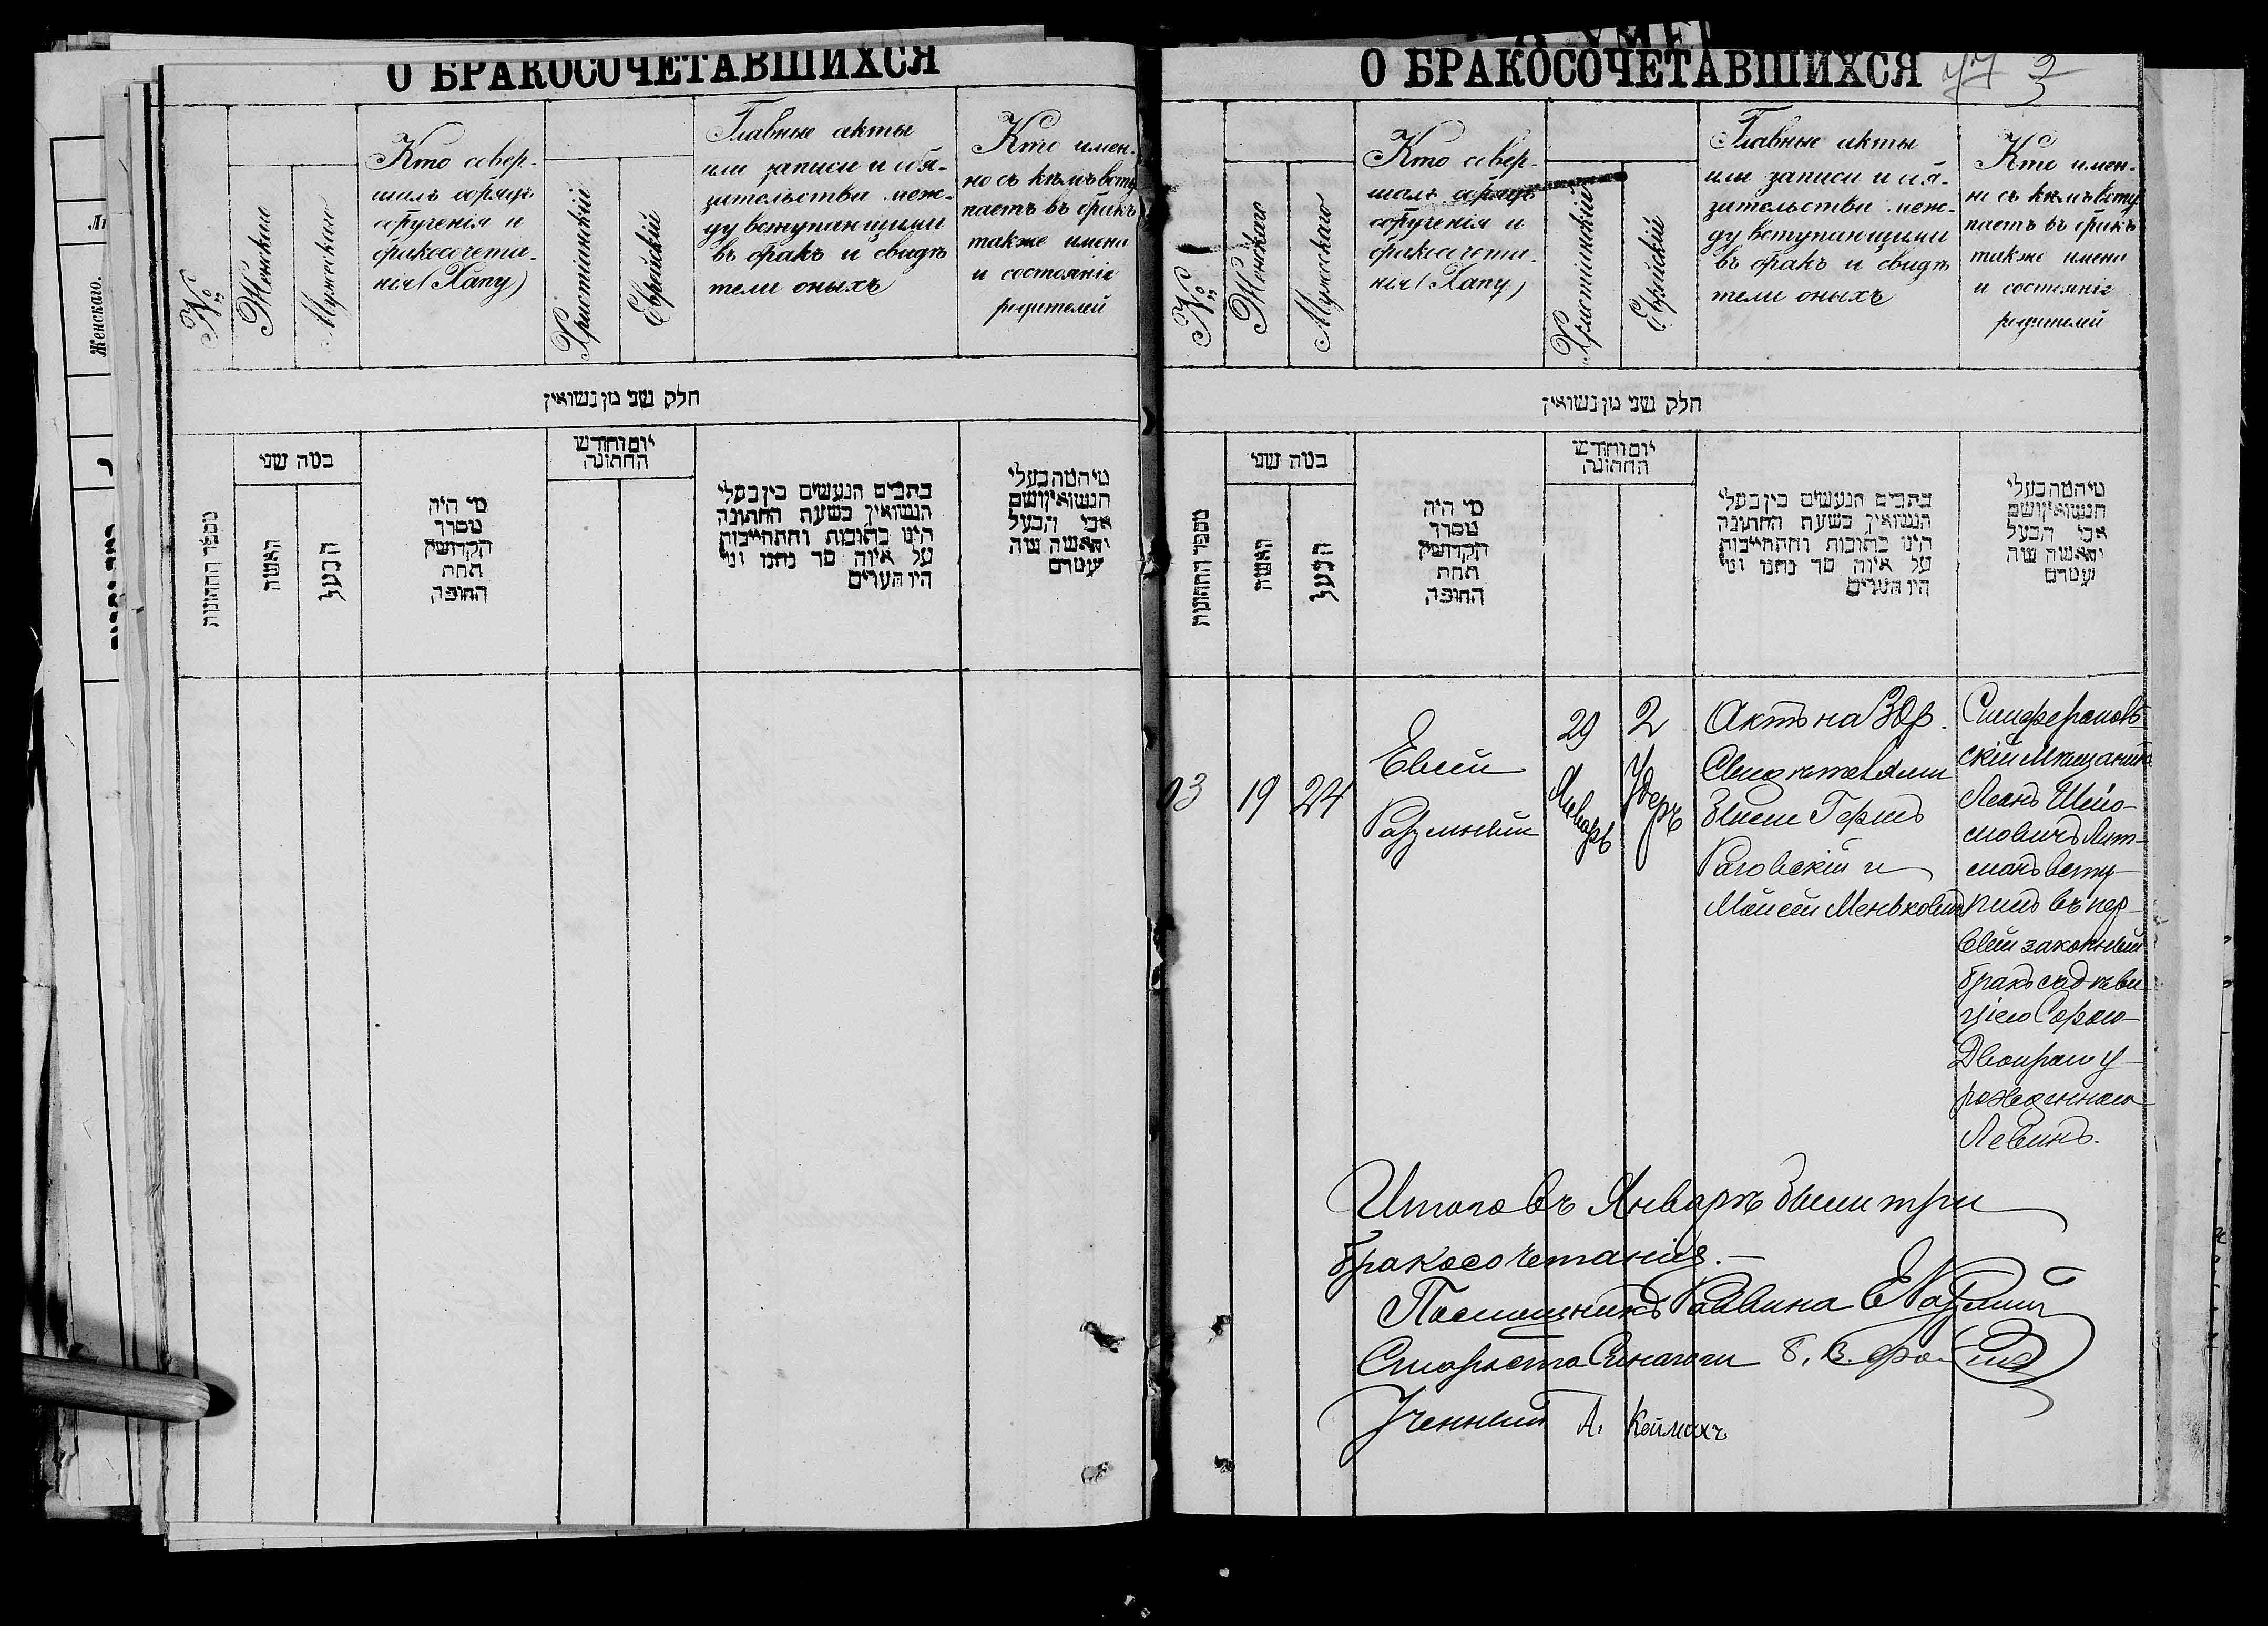 О БРАКОСОЧЕТАВШИХСЯ
№
Женскаго
Мужескаго
Кто совер-
шалъ обрядъ
обрученія и
бракосочета-
нія (Хапу)
Христіанскій
Еврейскій
Главные акты
или записи и обя-
зательства меж-
ду вступающими
въ бракъ и свидѣ
тели оныхъ
Кто имен-
но съ кѣмъ всту
паетъ въ бракъ
также имена
и состояніе
родителей
חלק שני מן נשואין
מספר החתונות
כמה שני
האשה
הבעל
מי היה
מסדר
הקדושין
תחת
החופה
יום וחודש
החתונה
כתבים הנעשים בין בעלי
הנשואין בשעת החתונה
היינו כתובות והתחייבות
על איזה סך
היו העדים
אבי הבעל
Женскаго.
О БРАКОСОЧЕТАВШИХСЯ
3
№
Женскаго
Мужескаго
Кто совер-
шалъ обрядъ
обрученія и
бракосочета-
нія (Хапу)
Христіанскій
Еврейскій
Главные акты
или записи и обя-
зательства меж-
ду вступающими
въ бракъ и свидѣ
тели оныхъ
Кто имен-
но съ кѣмъ всту
паетъ въ бракъ
также имена
и состояніе
родителей
חלק שני מן נשואין
מספר החתונות
כמה שני
האשה
הבעל
מי היה
מסדר
הקדושין
תחת
החופה
יום וחודש
החתונה
כתבים הנעשים בין בעלי
הנשואין בשעת החתונה
היינו כתובות והתחייבות
על איזה סך
היו העדים
אבי הבעל
3
19
24
29
Январь
2
Актъ на
Свидѣтелями
были Гершъ
Раговскій и
Мойсей Меньковичъ
Симферополь-
скій Мѣщанинъ
мовичъ Лит-
манъ всту-
пилъ въ пер-
вый законный
бракъ съ дѣви-
цею Сорою
Двойрою у-
рожденною
Левинъ.
Итого въ Январѣ были три
бракосочетанія.
Помощникъ Раввина
Староста Синагоги
Ученный А. Коймахъ